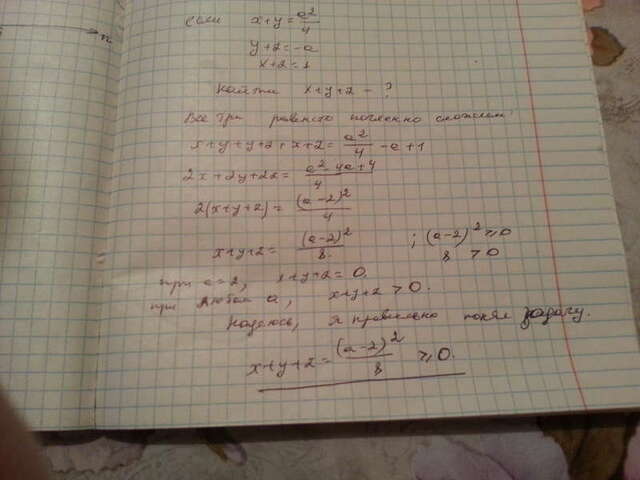 если x+y=a²/4
y+z=-a
x+z=1
Найти x+y+z - ?
Все три равенство почленно сложим:
x+y+y+z+x+z= a²/4 -a+1
2x+2y+2z= a²-4a+4/4
2(x+y+z)= (a-2)²/4
x+y+z= (a-2)²/8 ; (a-2)²≥0
8 >0
при a=2, x+y+z=0.
при любом a, x+y+z>0.
Надеюсь, я правильно понял задачу.
x+y+z= (a-2)²/8 ≥0.